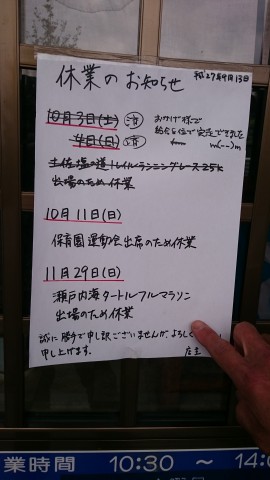 休業のお知らせ
平成27年9月13日
10月3日(土) 済
4日(日) 済
おかげ様で
総合5位で完走できました
m(--)m
土佐塩の道トレイルランニングレース25k
出場のため休業
10月11日(日)
保育園運動会出席のため休業
11月29日(日)
瀬戸内海タートルフルマラソン
出場のため休業
誠に勝手で申し訳ございませんが、よろしく
申し上げます。
店主
業時間 10:30 ～ 14:0